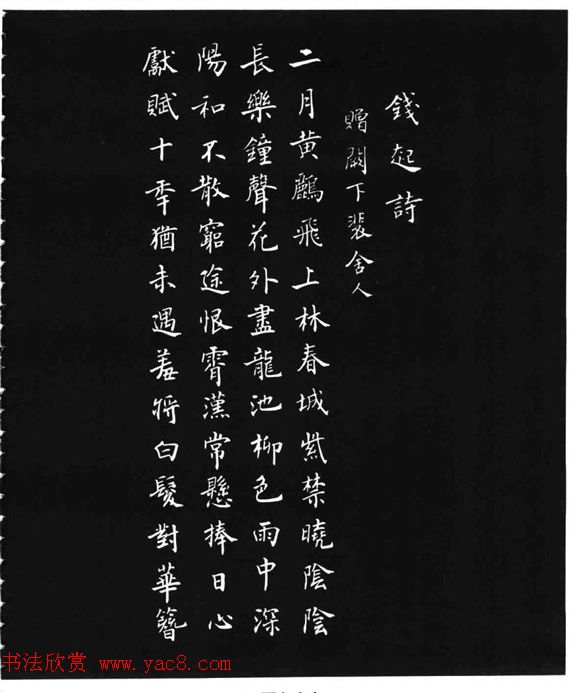 錢起詩
贈闕下裴舍人
二月黄鸝飛上林春城紫禁曉陰陰
長樂鐘聲花外盡龍池柳色雨中深
陽和不散窮途恨霄漢常懸捧日心
獻賦十年猶未遇羞將白髮對華簪
书法欣赏 www.yac8.com